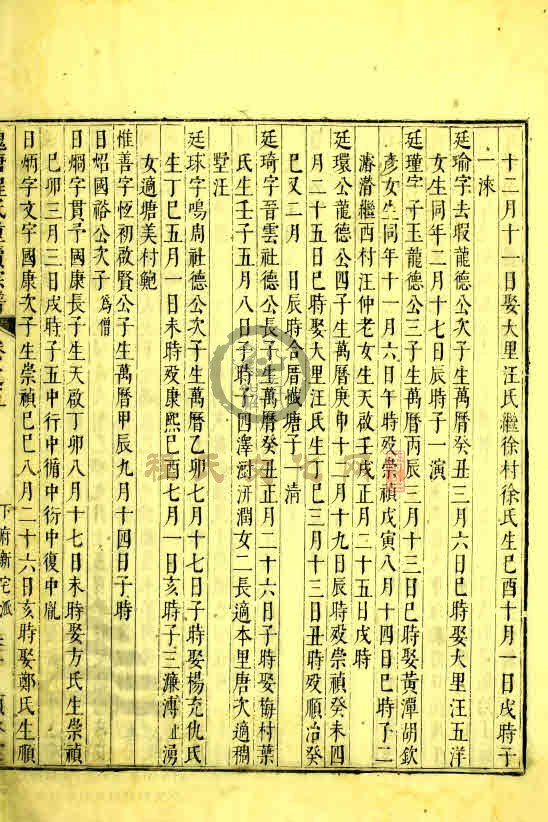 十二月十一日娶大里汪氏繼徐村徐氏生己酉十月一日戌時子
一涑
廷瑜字去瑕龍德公次子生萬曆癸丑三月六日巳時娶大里汪五洋
女生同年二月十七日辰時子一演
廷瑾字子玉龍德公三子生萬曆丙辰三月十三日巳時娶黃潭胡欽
彥女生同年十一月六日午時歿崇禎戊寅八月十四日巳時子二
濬濳繼西村汪仲老女生天啟壬戌正月二十五日戌時
廷環公龍德公四子生萬曆庚申十二月十九日辰時歿崇禎癸未四
月二十五日巳時娶大里汪氏生丁巳三月十三日丑時歿順治癸
巳又二月 日辰時合厝檆塘子一淸
廷琦字晉雲社德公長子生萬曆癸丑正月二十六日子時娶梅村葉
氏生壬子五月八日子時子四澤 汧潤女二長適本里唐次適稠
墅汪
廷球字鳴周社德公次子生萬曆乙卯七月十七日子時娶楊充仇氏
生丁巳五月一日未時歿康熙己酉七月一日亥時子三濂溥 湧
女適塘美村鮑
惟善字恆初啟賢公子生萬曆甲辰九月十四日子時
日炤國裕公次子為僧
日烱字貫予國康長子生天啟丁卯八月十七日未時娶方氏生崇禎
己卯三月三日戌時子五中行中循中衍中復中胤
日炳字文宇國康次子生崇禎己巳八月二十六日亥時娶鄭氏生順
程氏 宗譜 卷之 下府新宅派
程氏文化网